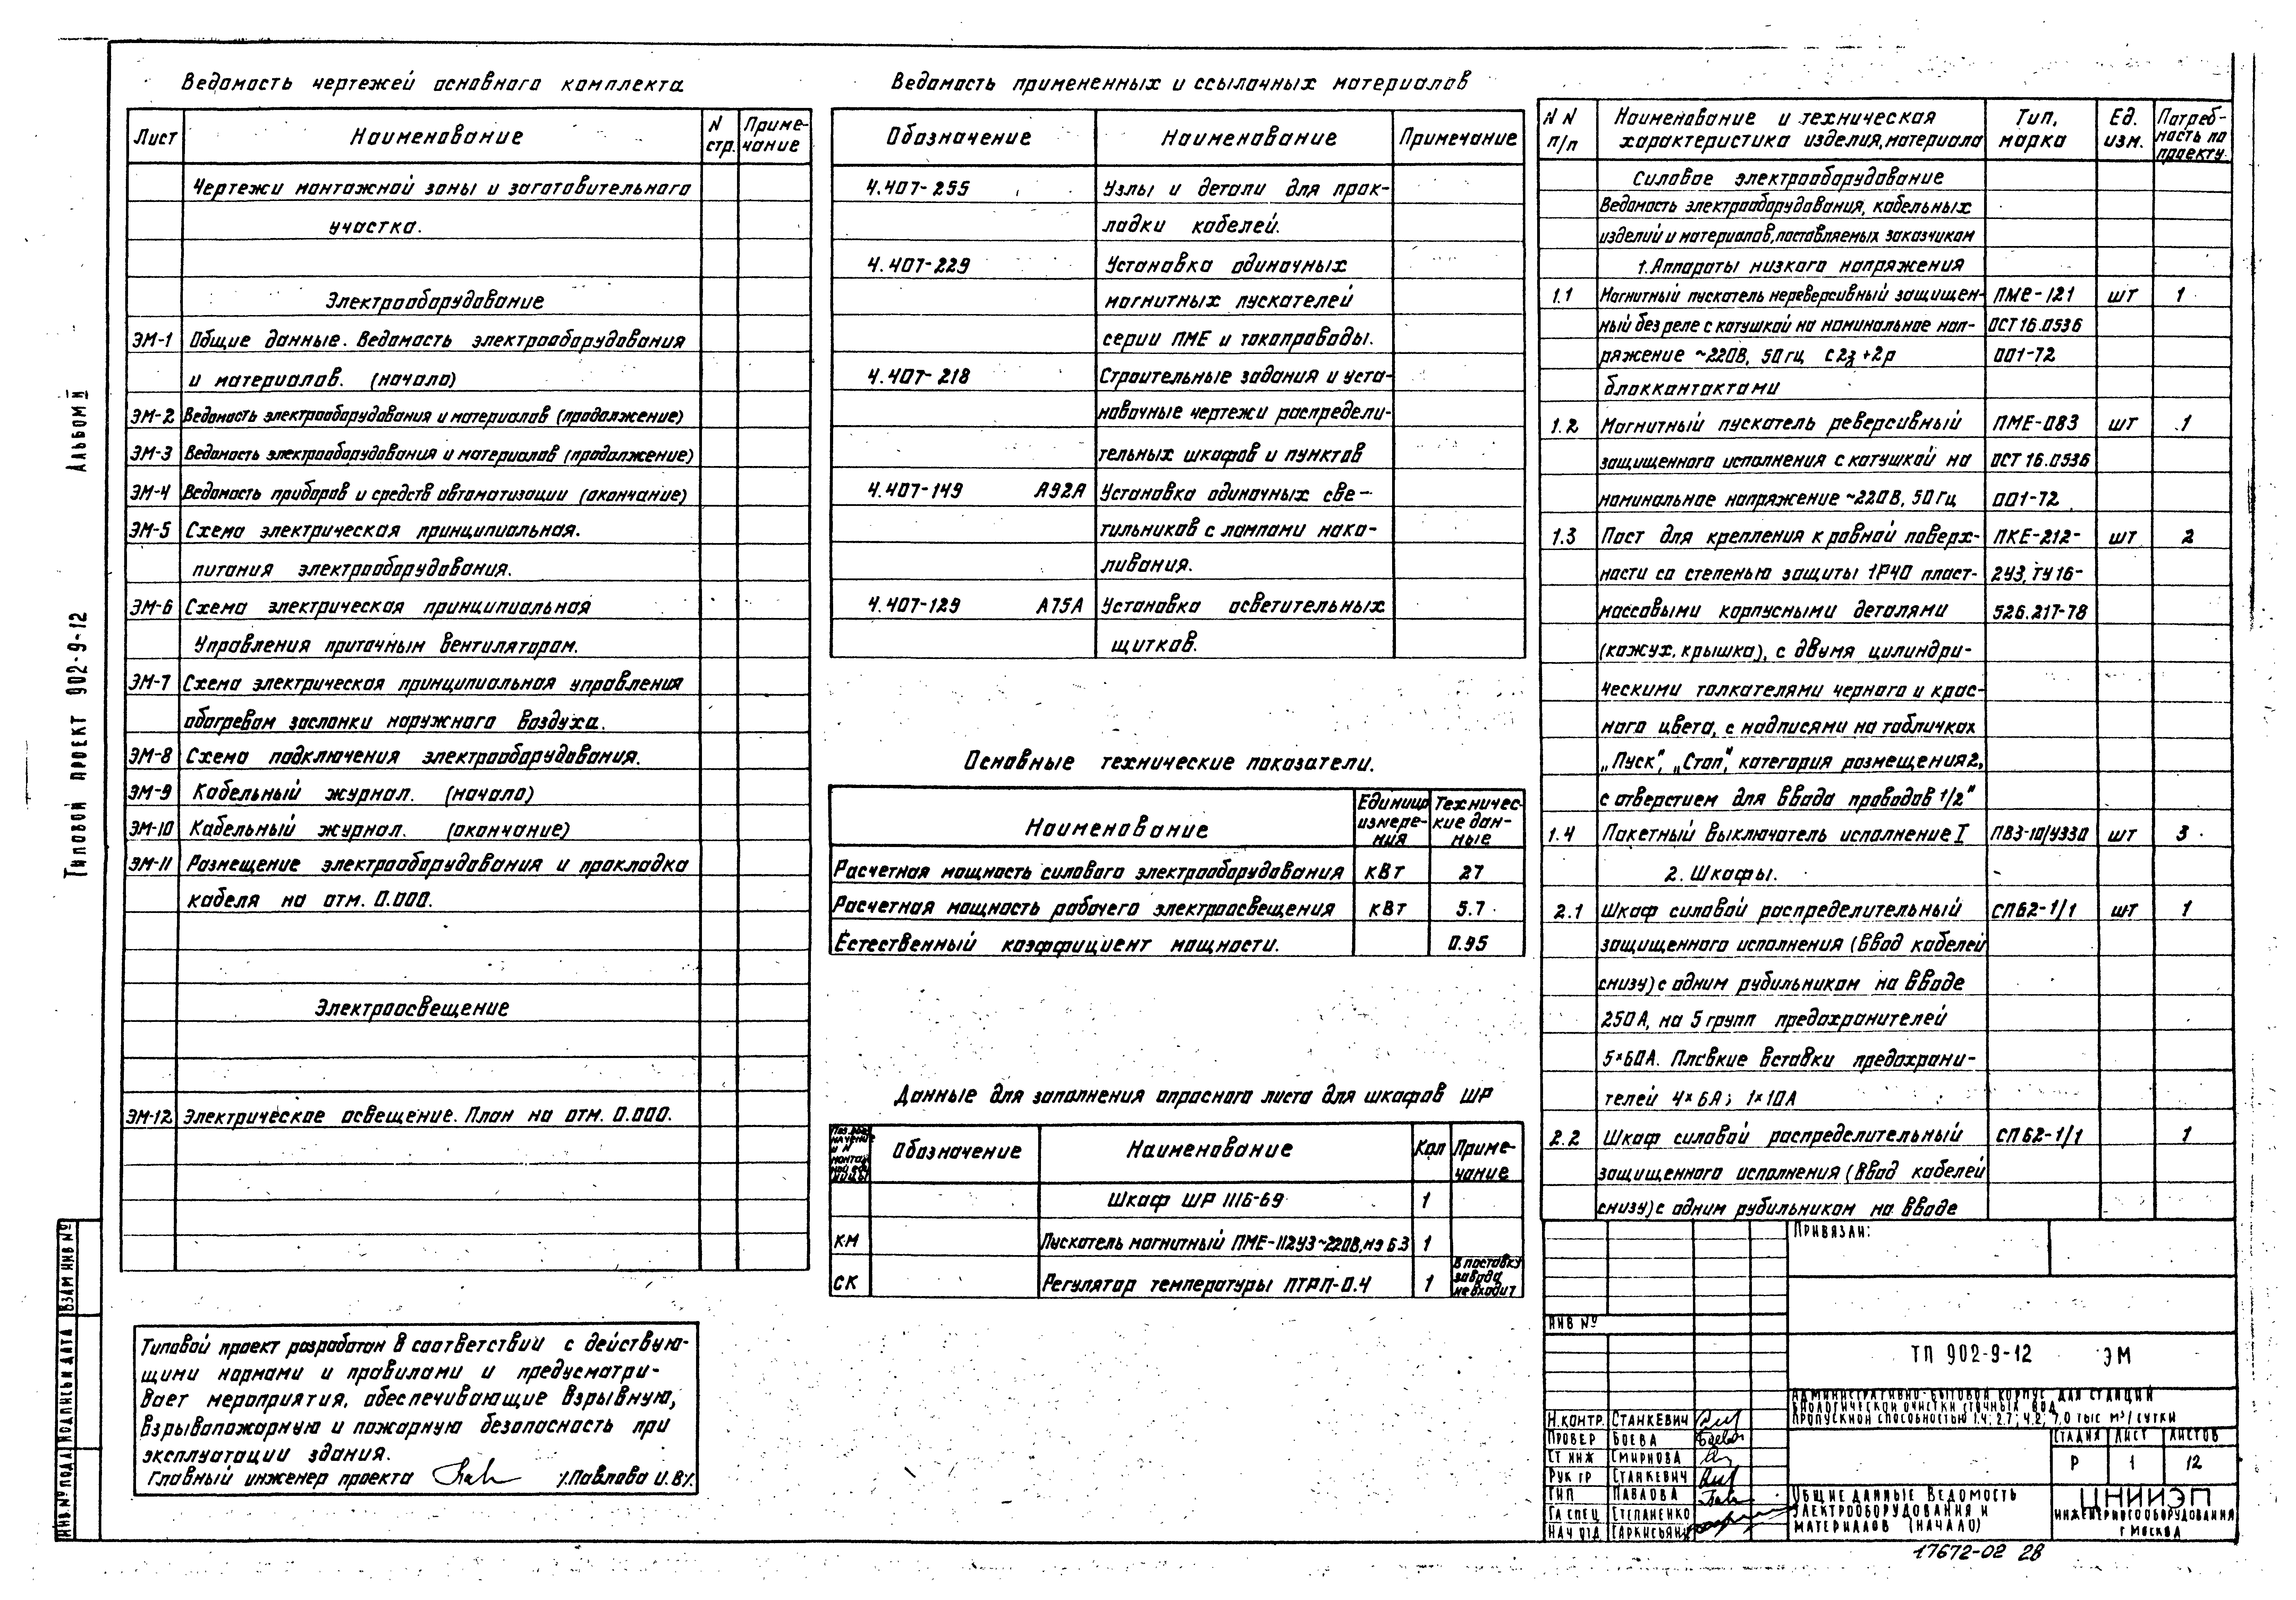 Ведомость чертежей основного комплекта
Лист Наименование N стр. Приме-чание
Чертежи монтажной зоны и заготовительного
участка.
Электрооборудование
ЭМ-1 Общие данные. Ведомость электрооборудования
и материалов. (начало)
ЭМ-2 Ведомость электрооборудования и материалов (продолжение)
ЭМ-3 Ведомость электрооборудования и материалов (продолжение)
ЭМ-4 Ведомость приборов и средств автоматизации (окончание)
ЭМ-5 Схема электрическая принципиальная.
питания электрооборудования.
ЭМ-6 Схема электрическая принципиальная
Управления приточным вентилятором.
ЭМ-7 Схема электрическая принципиальная управления
обогревом заслонки наружного воздуха.
ЭМ-8 Схема подключения электрооборудования.
ЭМ-9 Кабельный журнал. (начало)
ЭМ-10 Кабельный журнал. (окончание)
ЭМ-11 Размещение электрооборудования и прокладка
кабеля на отм. 0.000.
Электроосвещение
ЭМ-12 Электрическое освещение. План на отм. 0.000.
Типовой проект разработан в соответствии с действую-
щими нормами и правилами и предусматри-
вает мероприятия, обеспечивающие взрывную,
взрывопожарную и пожарную безопасность при
эксплуатации здания.
Главный инженер проекта /Павлова И.В/.
Ведомость примененных и ссылочных материалов
Обозначение Наименование Примечание
4.407-255 Узлы и детали для прок-
ладки кабелей.
4.407-229 Установка одиночных
магнитных пускателей
серии ПМЕ и токопроводы.
4.407-218 Строительные задания и уста-
новочные чертежи распредели-
тельных шкафов и пунктов
4.407-149 А92А Установка одиночных све-
тильников с лампами нака-
ливания.
4.407-129 А75А Установка осветительных
щитков.
Основные технические показатели.
Наименование Единицы измере-ния Техничес-кие дан-ные
Расчетная мощность силового электрооборудования кВт 27
Расчетная мощность рабочего электроосвещения кВт 5.7
Естественный коэффициент мощности. 0.95
Данные для заполнения опросного листа для шкафов ШР
Обозначение Наименование Кол Приме-чание
Шкаф ШР 1116-69 1
КМ Пускатель магнитный ПМЕ-112У3~220В, 1
СК Регулятор температуры ПТРП-0.4 1 В поставку завода не входит
N N п/п Наименование и техническая характеристика изделия, материала Тип, марка Ед. изм. Потреб-ность по проекту
Силовое электрооборудование
Ведомость электрооборудования, кабельных
изделий и материалов, поставляемых заказчиком
1. Аппараты низкого напряжения
1.1 Магнитный пускатель нереверсивный защищен- ПМЕ-121 шт 1
ный без реле с катушкой на номинальное нап- ОСТ 16.0536
ряжение ~220В, 50гц с 2з+2р 001-72
блокконтактами
1.2 Магнитный пускатель реверсивный ПМЕ-083 шт 1
защищенного исполнения с катушкой на ОСТ 16.0536
номинальное напряжение ~220В, 50Гц 001-72
1.3 Пост для крепления к ровной поверх- ПКЕ-212- шт 2
ности со степенью защиты 1Р40 пласт- 2У3, ТУ16-
массовыми корпусными деталями 526.217-78
(кожух, крышка), с двумя цилиндри-
ческими толкателями черного и крас-
ного цвета, с надписями на табличках
„Пуск", „Стоп", категория размещения 2,
с отверстием для ввода проводов 1/2"
1.4 Пакетный выключатель исполнение I ПВ3-10/У330 шт 3
2. Шкафы.
2.1 Шкаф силовой распределительный СП62-1/1 шт 1
защищенного исполнения (ввод кабелей
снизу) с одним рубильником на вводе
250А, на 5 групп предохранителей
5×60А. Плавкие вставки предохрани-
телей 4×6А; 1×10А
2.2 Шкаф силовой распределительный СП62-1/1 1
защищенного исполнения (ввод кабелей
снизу) с одним рубильником на вводе
Привязан:
Инв №
ТП 902-9-12 ЭМ
Административно-бытовой корпус для станций
биологической очистки сточных вод
пропускной способностью 1.4; 2.7; 4.2; 7.0 тыс м³/сутки
Н.контр. Станкевич
Провер Боева
Ст инж Смирнова
Рук гр Станкевич
ГИП Павлова
Гл спец Степаненко
Нач отд Саркисьян
Стадия Лист Листов
Р 1 12
Общие данные Ведомость
электрооборудования и
материалов (начало)
ЦНИИЭП
инженерного оборудования
г Москва
17672-02 28
Типовой проект 902-9-12 Альбом II
Инв № подл Подпись и дата Взам инв №